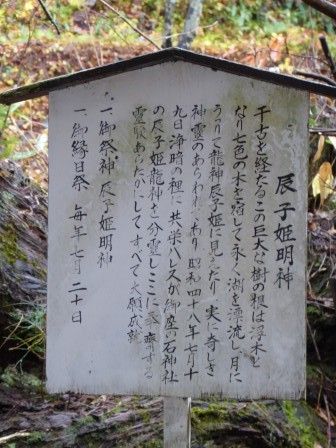 辰子姫明神
千古を経たるこの巨大な樹の根は浮木と
なり七色の木を宿して永く湖を漂流し月に
うりて龍神辰子姫に見ゑたり、実に奇しき
神霊のあらわれであり昭和四十八年七月十
九日浄暗の裡に共栄パレスが御座の石神社
の辰子姫龍神を分霊しここに奉齋する
霊験あらたかにしてすべて大願成就
一、御祭神 辰子姫明神
一、御縁日祭 毎年七月二十日